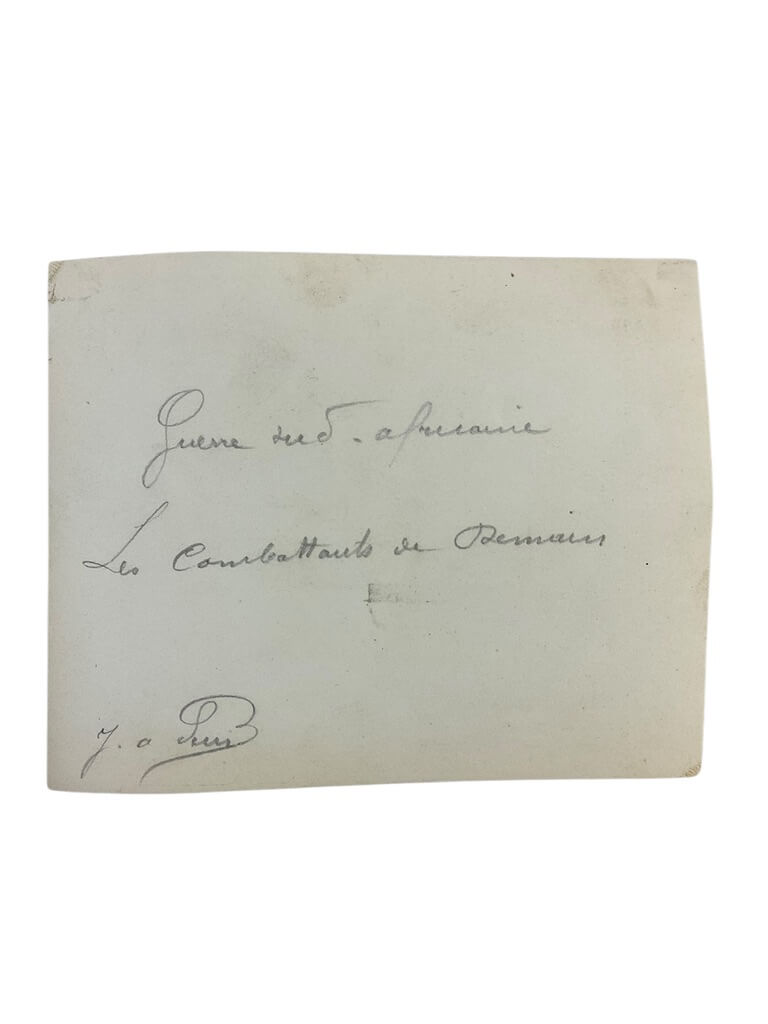 Guerre sud-africaine
Les Combattants de Demain
J. a